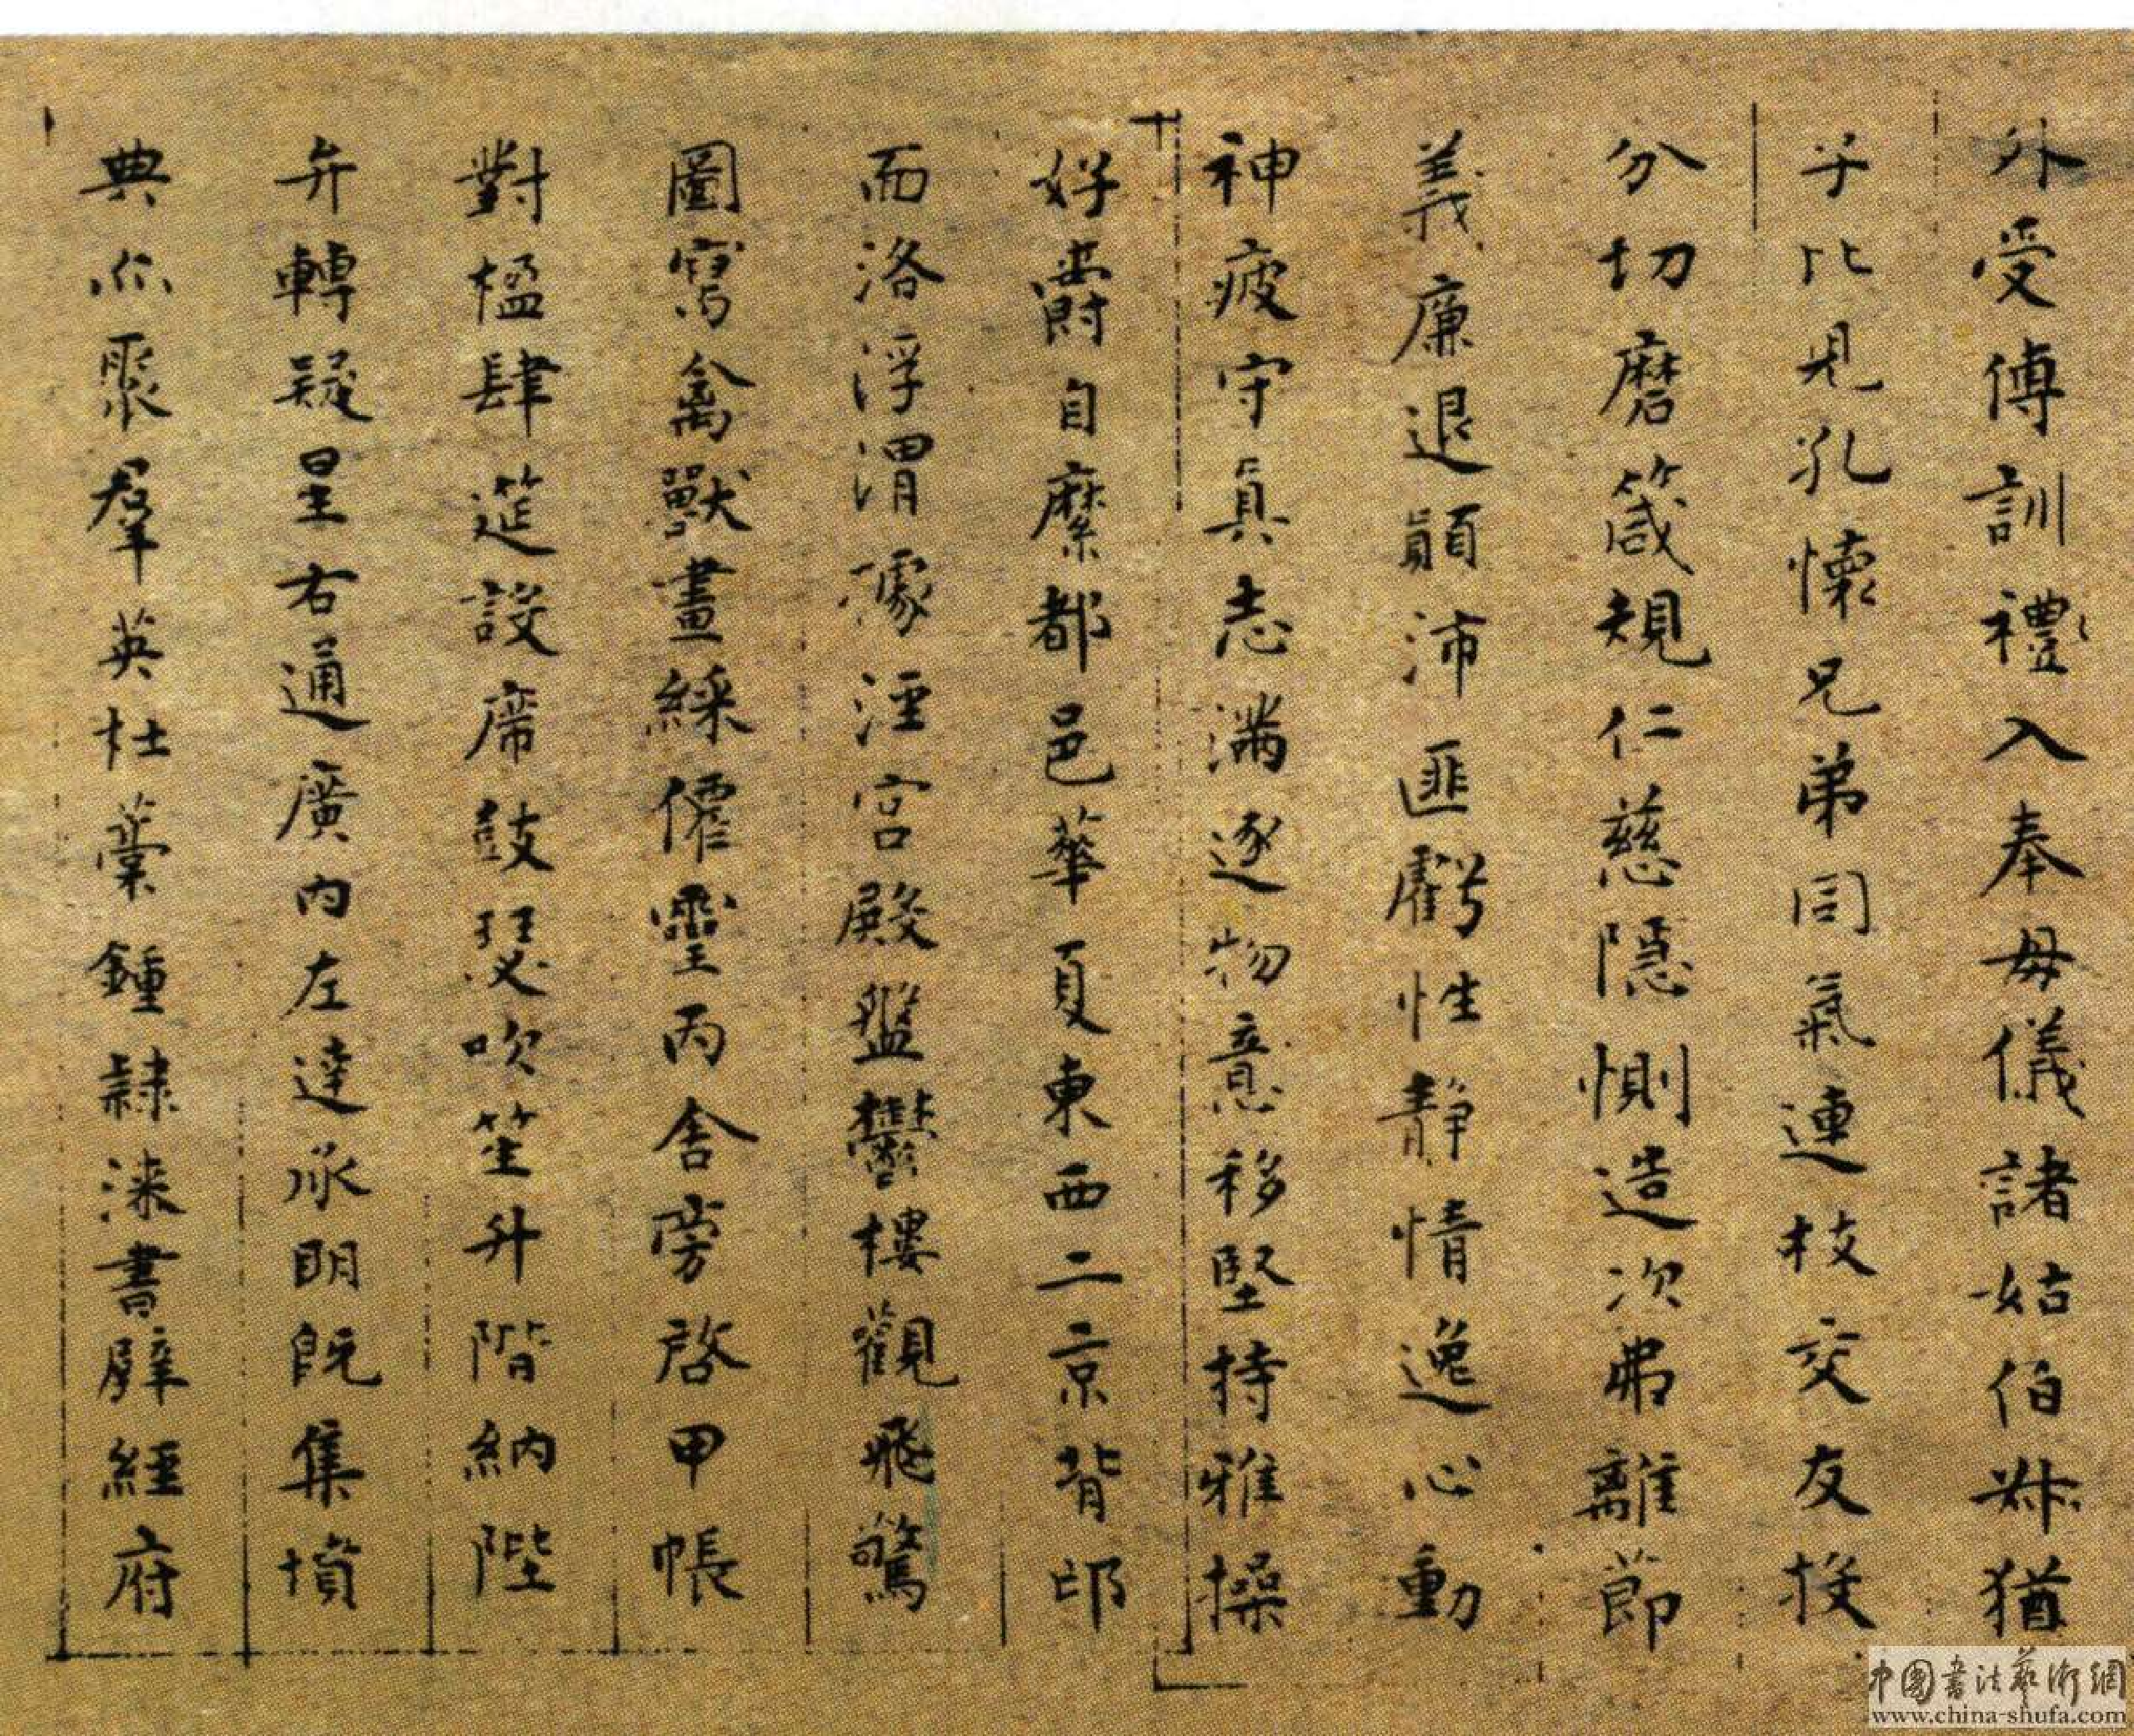 外受傅訓禮入奉母儀諸姑伯叔猶
子比兒孔懷兄弟同氣連枝交友投
分切磨箴規仁慈隱惻造次弗離節
義廉退顛沛匪虧性靜情逸心動
神疲守真志滿逐物意移堅持雅操
好爵自縻都邑華夏東西二京背邙
面洛浮渭據涇宮殿盤鬱樓觀飛驚
圖寫禽獸畫綵僊靈丙舍旁啓甲帳
對楹肆筵設席鼓瑟吹笙升階納陛
弁轉疑星右通廣內左達承明既集墳
典亦聚群英杜稾鍾隸漆書壁經府
中國書法藝術網
www.china-shufa.com